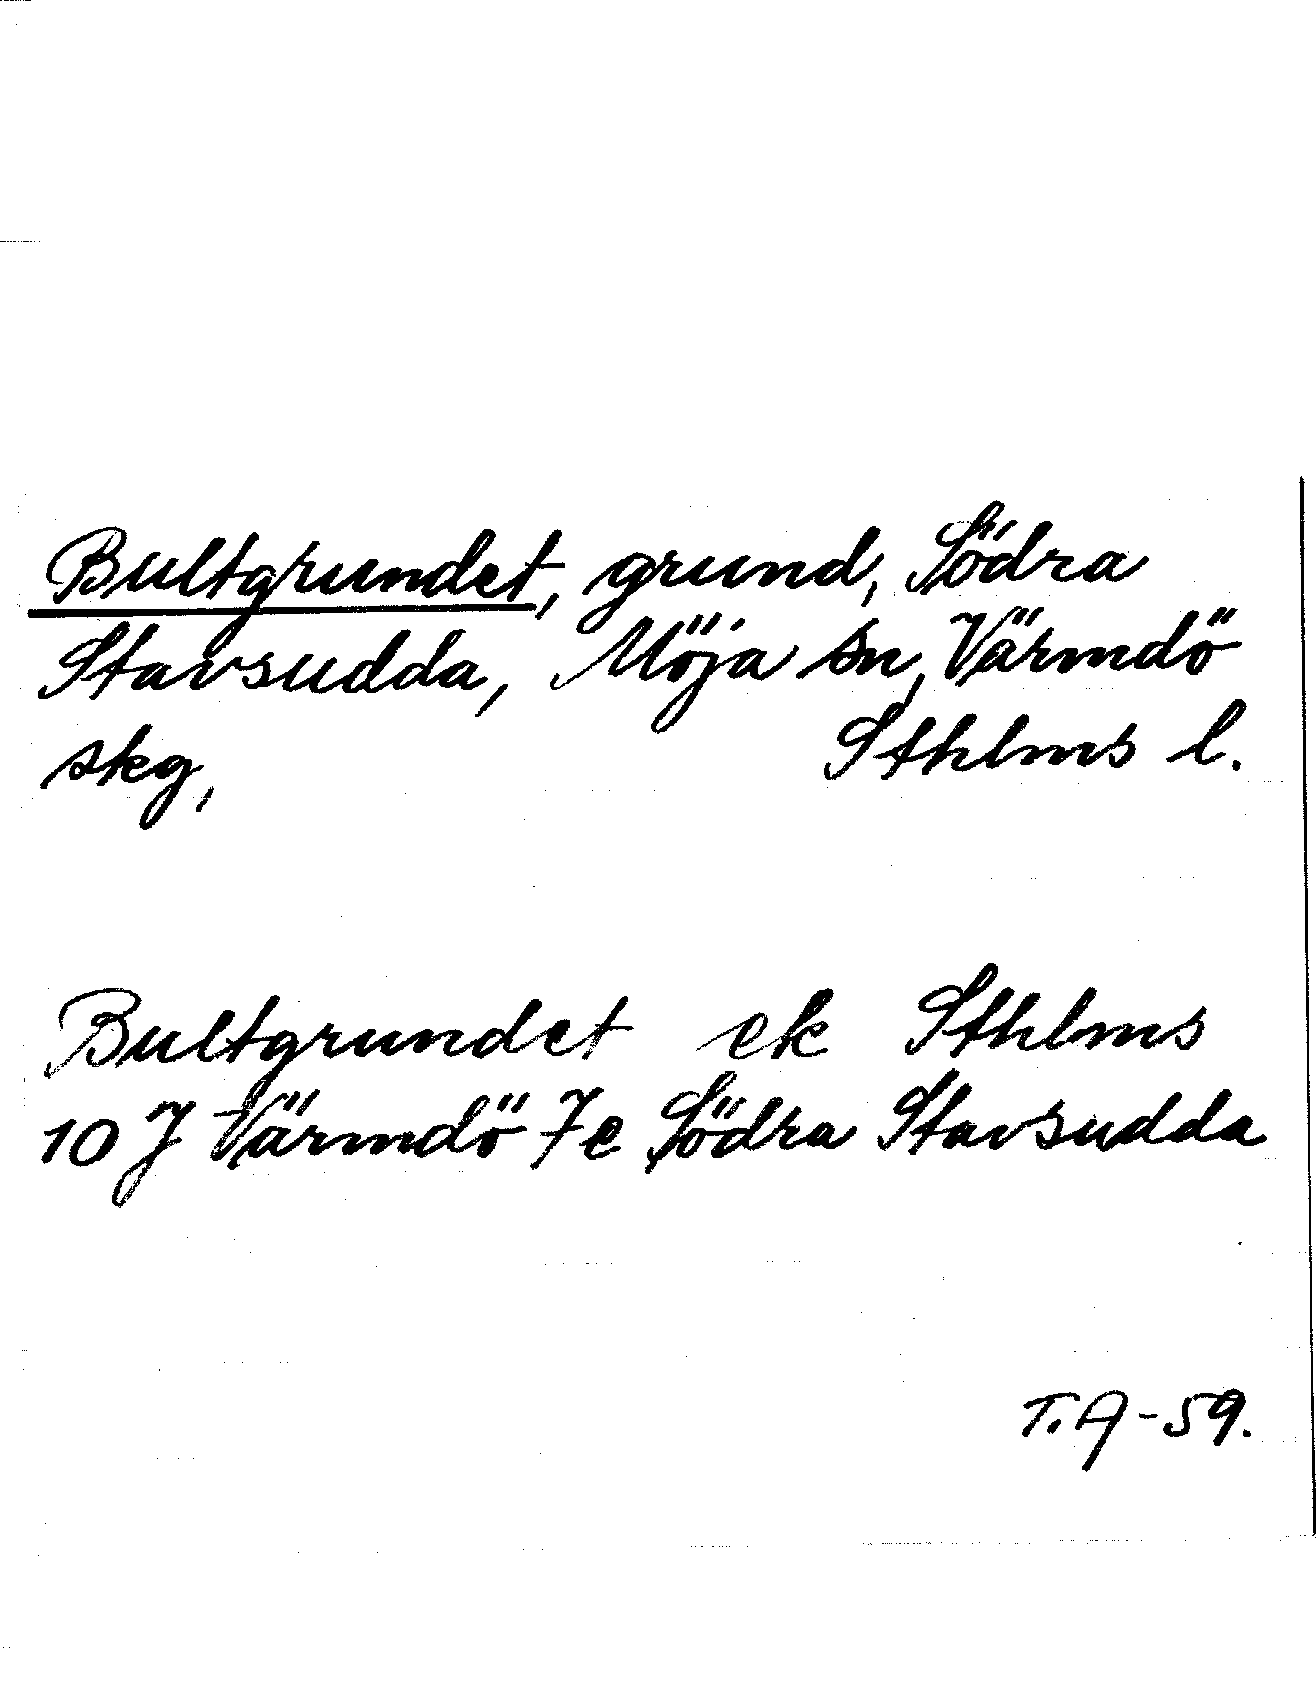 Bultgrundet, grund, Södra
Stavsudda, Möja sn, Värmdö
skg, Sthlms l.
Bultgrundet ek Sthlms
10 J Värmdö 7e Södra Stavsudda
T.A-59.